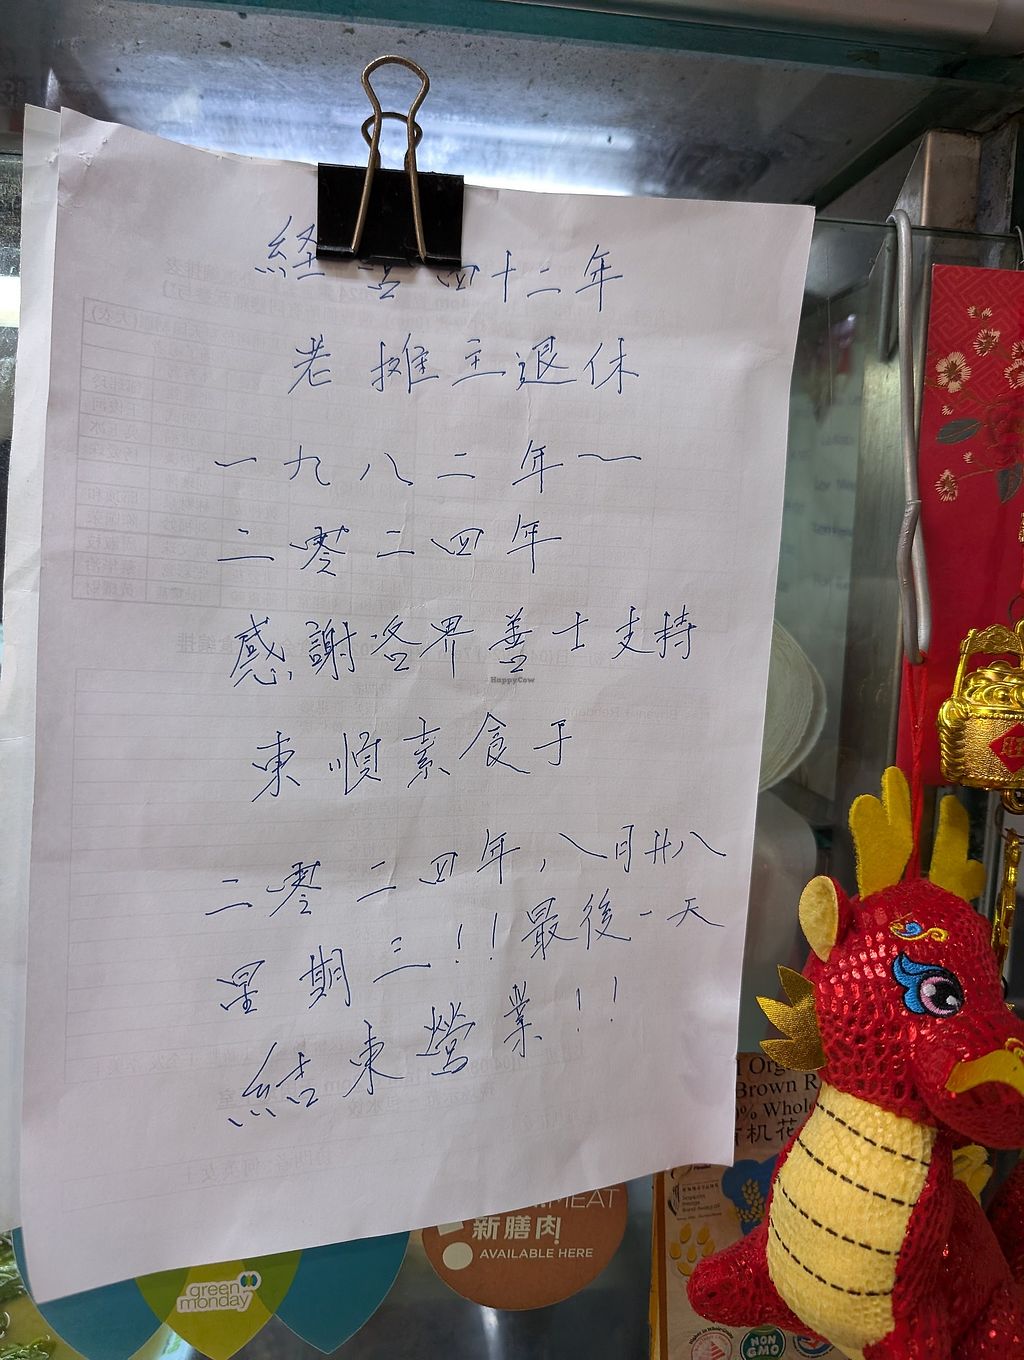 経营四十二年
老攤主退休
一九八二年～
二零二四年
感謝各界善士支持
東順素食于
二零二四年,八月廿八
星期三!!最後一天
結束營業!!
HappyCow
green
monday
MEAT
新膳肉
AVAILABLE HERE
Brown R
% Whole
有机花
NON
GMO